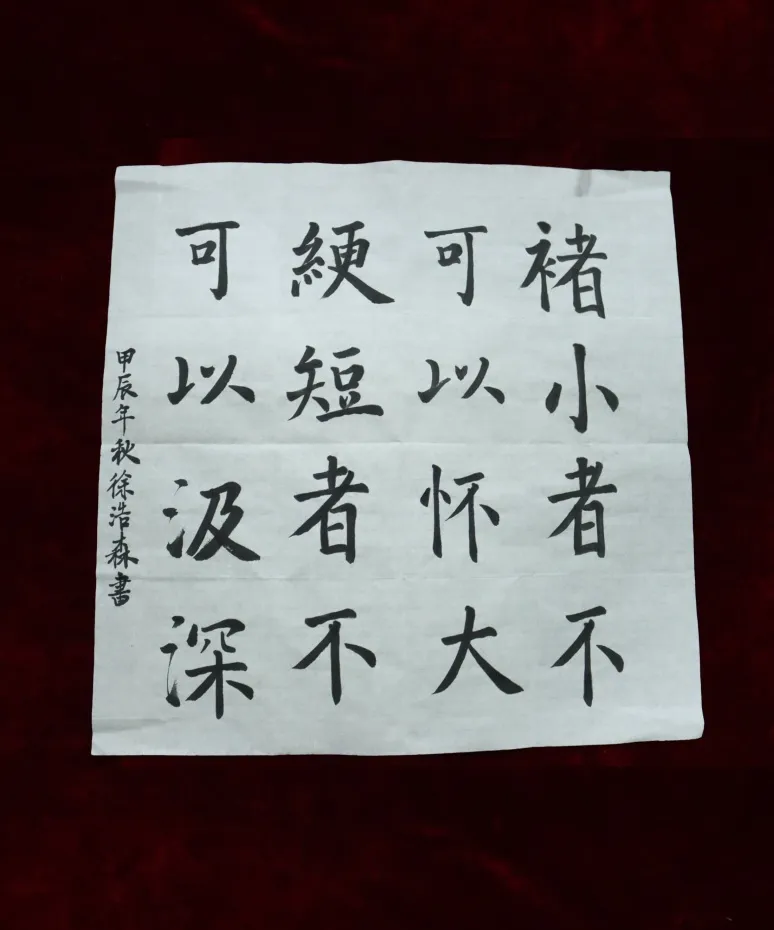 褚小者不
可以怀大
綆短者不
可以汲深
甲辰年秋徐浩森書